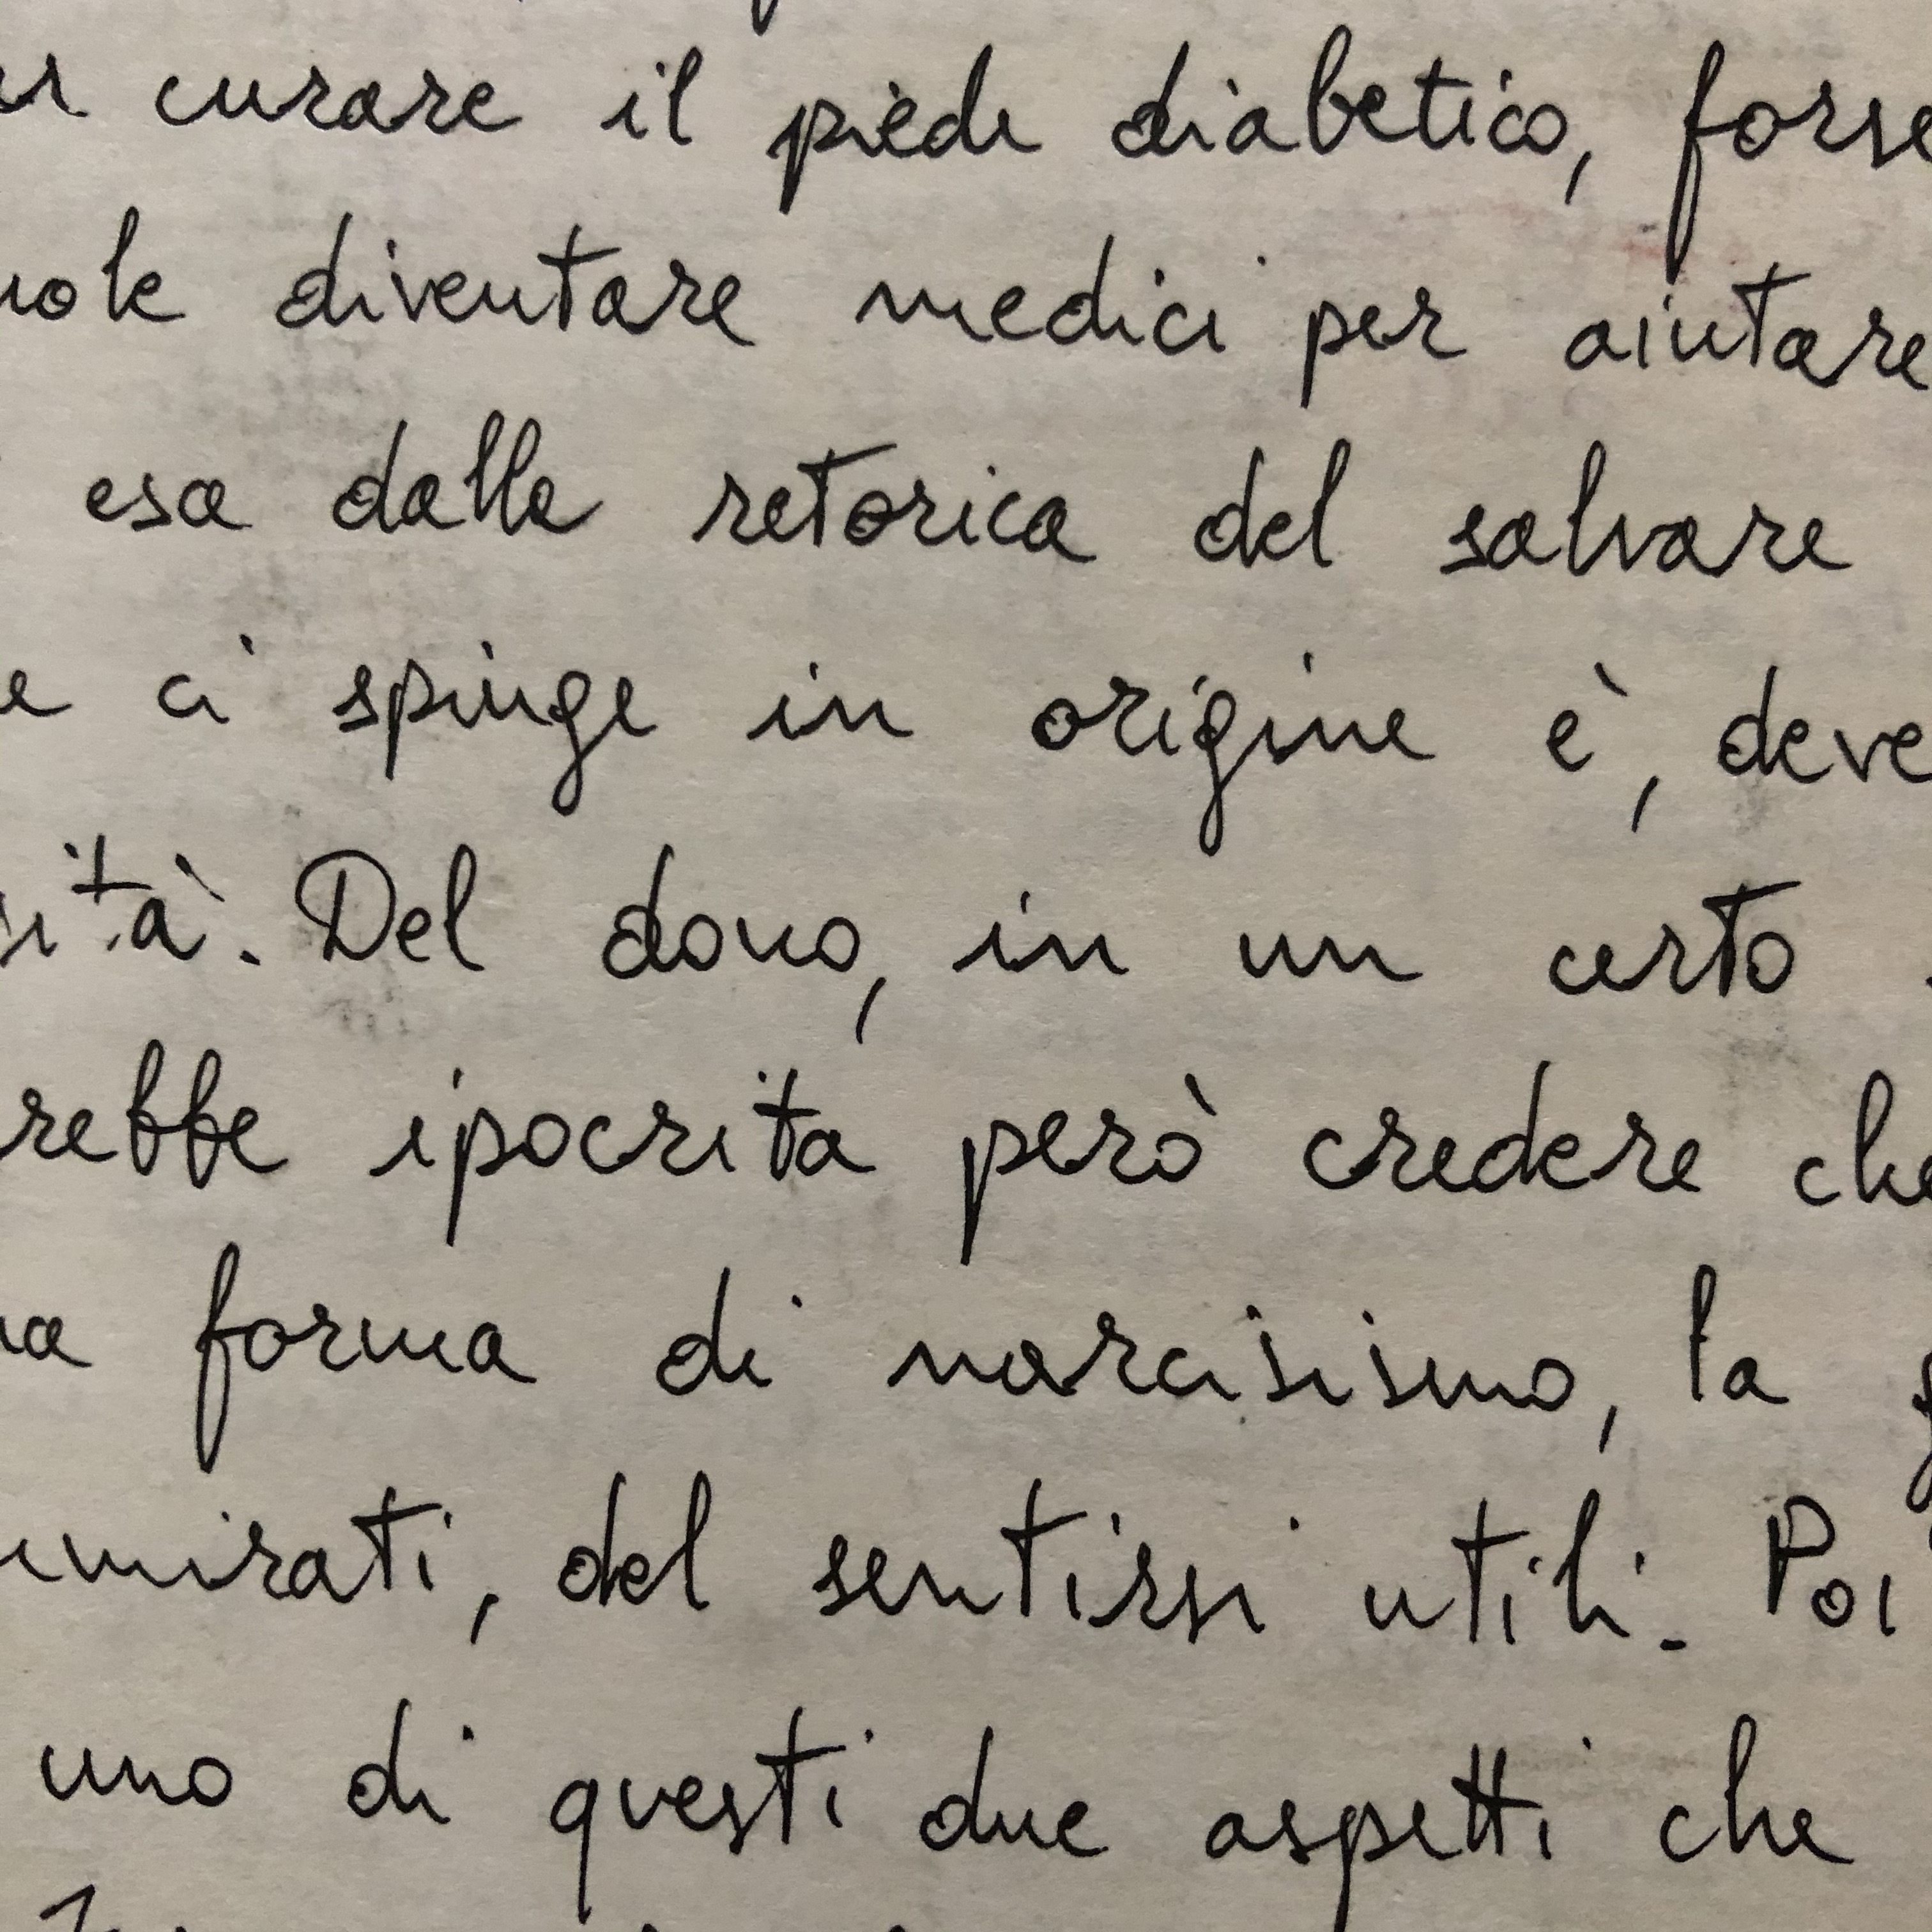 curare il piede diabetico, forse
diventare medici per aiutare
esa dalla retorica del salvare
e ci spinge in origine è, deve
sità. Del dono, in un certo
rebbe ipocrita però credere che
forma di narcisismo, la
mirati, del sentirsi utili. Poi
uno di questi due aspetti che